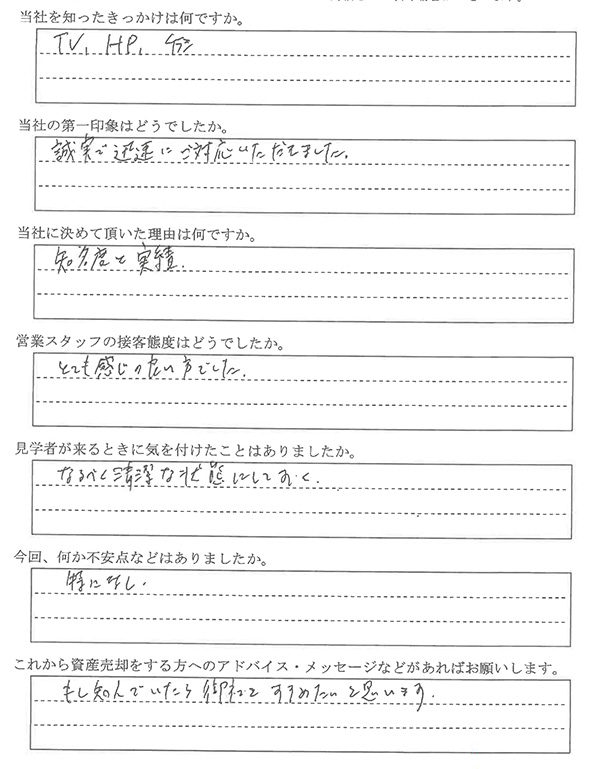 当社を知ったきっかけは何ですか。
TV, HP,
当社の第一印象はどうでしたか。
誠実で迅速にご対応いただきました。
当社に決めて頂いた理由は何ですか。
知名度と実績.
営業スタッフの接客態度はどうでしたか。
とても感じの良い方でした.
見学者が来るときに気を付けたことはありましたか。
なるべく清潔な状態にしておく.
今回、何か不安点などはありましたか。
特になし.
これから資産売却をする方へのアドバイス・メッセージなどがあればお願いします。
もし知人でいたら御社をすすめたいと思います.